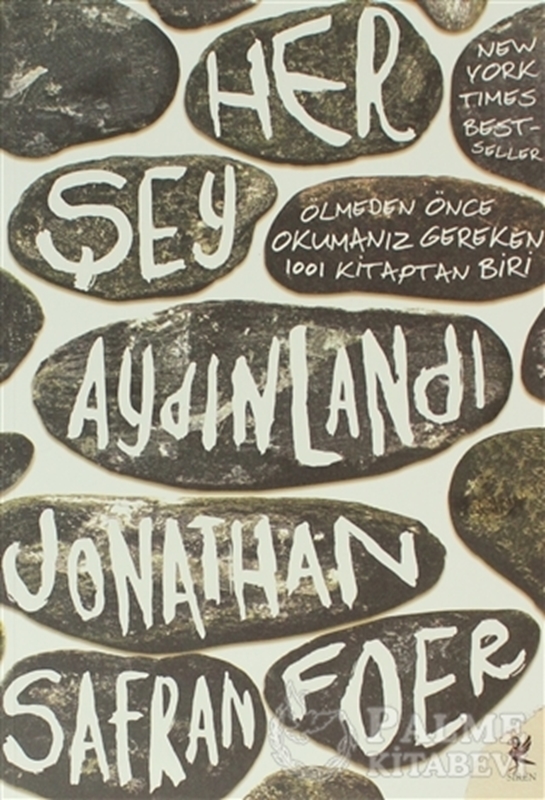 HER
NEW
YORK
TIMES
BEST-
SELLER
ŞEY
ÖLMEDEN ÖNCE
OKUMANIZ GEREKEN
1001 KİTAPTAN BİRİ
AYDINLANDI
JONATHAN
SAFRAN FOER
PALME
KİTABEVİ
SİREN